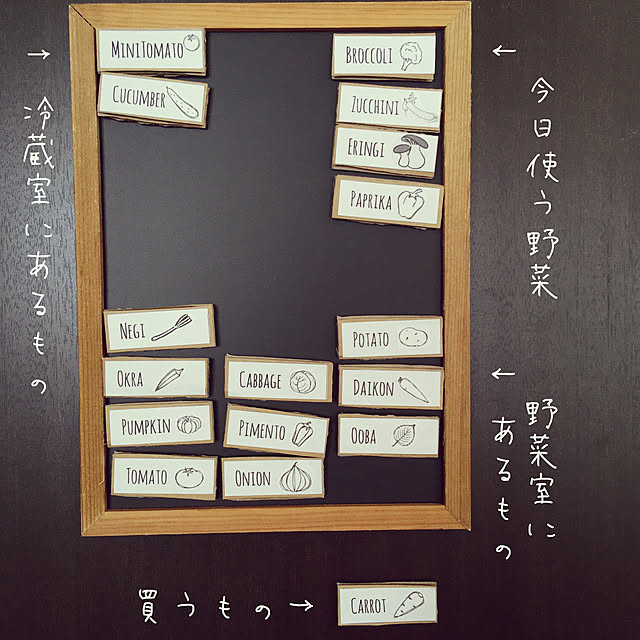 →
冷蔵室にあるもの
MINITOMATO
CUCUMBER
BROCCOLI
ZUCCHINI
ERINGI
PAPRIKA
←
今日使う野菜
NEGI
OKRA
PUMPKIN
TOMATO
CABBAGE
PIMENTO
ONION
POTATO
DAIKON
OOBA
←
野菜室に
あるもの
買うもの→
CARROT